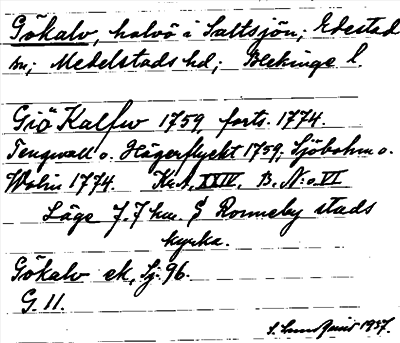 Gökalv, halvö i Saltsjön; Edestad
sn; Medelstads hd; Blekinge l.
Giö Kalfw 1759, forts. 1774.
Tengwall o. Hägerflycht 1759, Sjöbohm o.
Wolin 1774. Kr.A. XXIV. B. N:o VI
Läge 7.7 km. S Ronneby stads
kyrka.
Gökalv ek, Sj. 96.
G. 11.
S. Lundquist 1937.